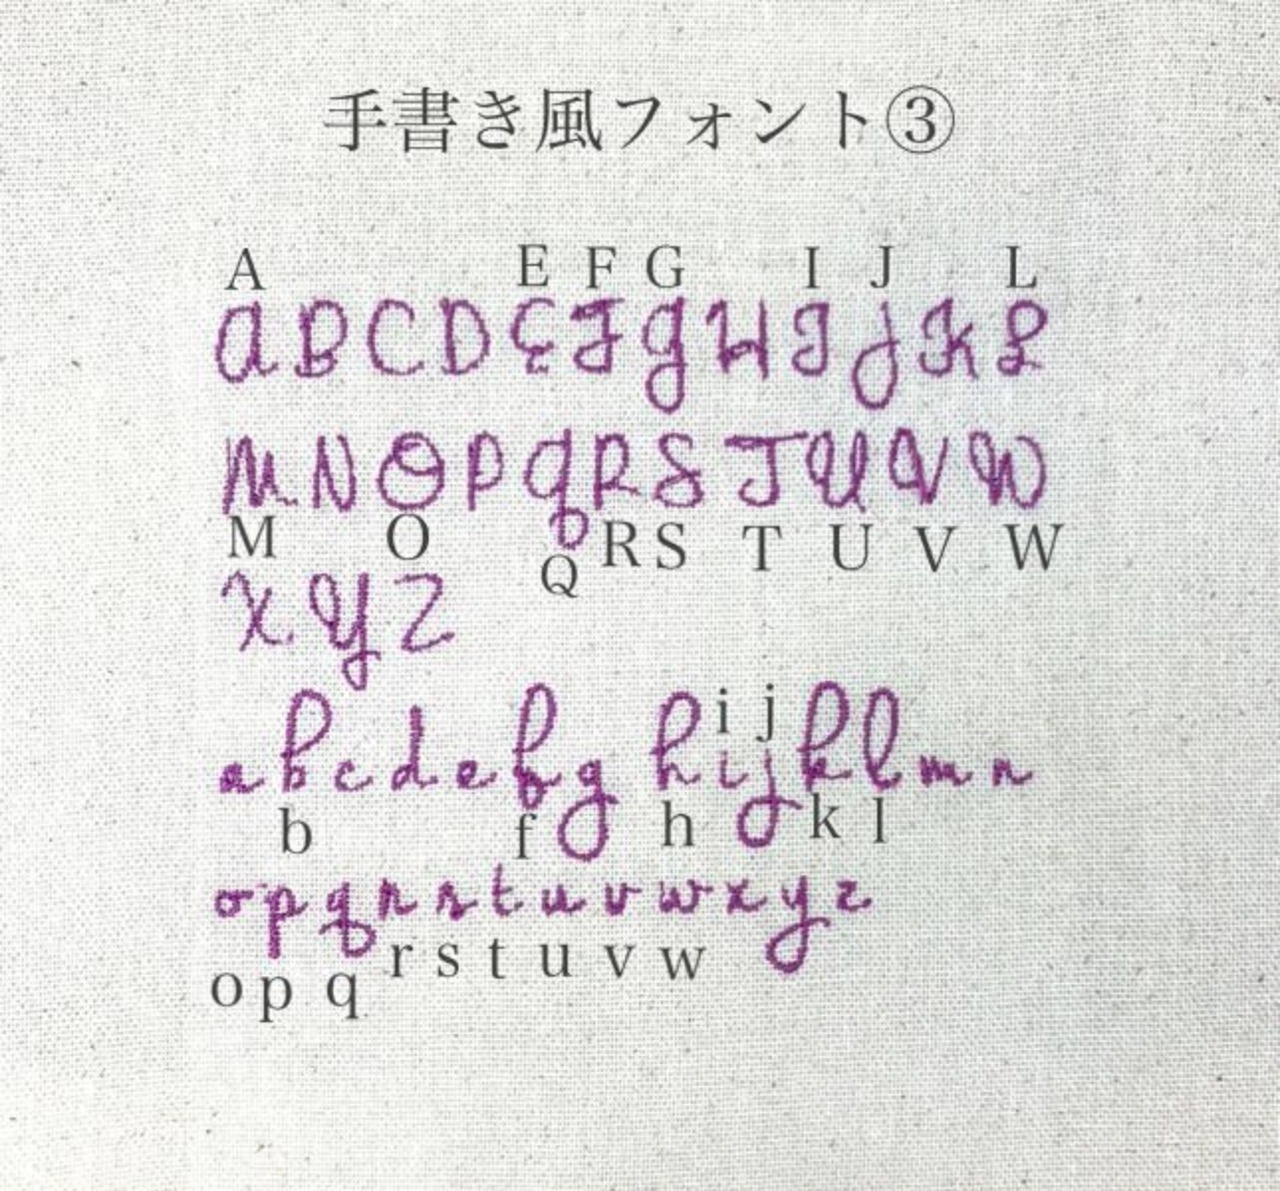 手書き風フォント③
A E F G I J L
A B C D E F G H I J K L
M N O P Q R S T U V W
M O Q R S T U V W
X Y Z
i j
a b c d e f g h i j k l m n
b f h k l
o p q r s t u v w x y z
o p q r s t u v w